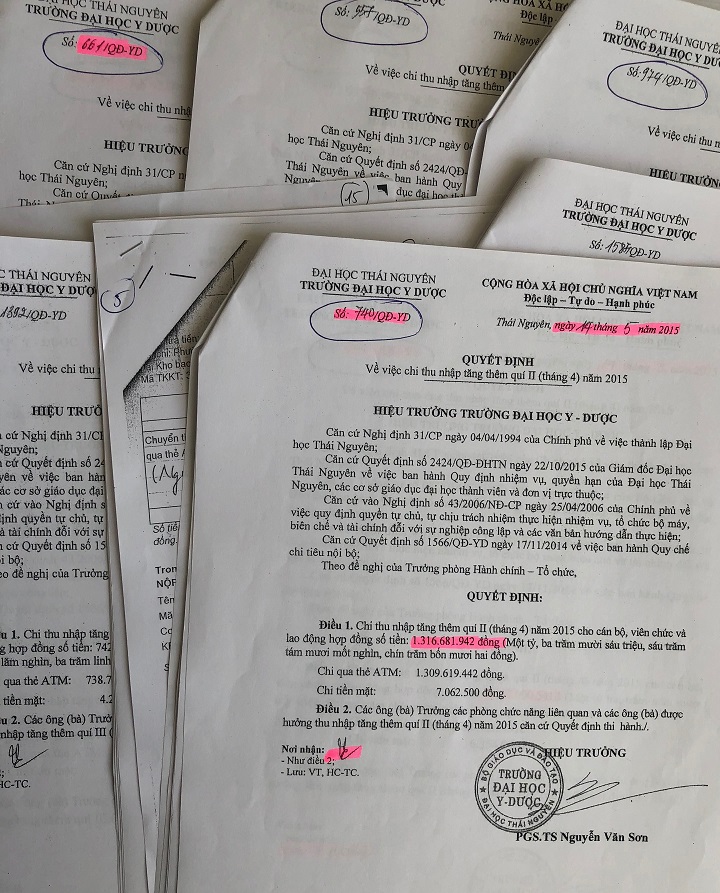 ĐẠI HỌC THÁI NGUYÊN
TRƯỜNG ĐẠI HỌC Y DƯỢC
Số: 661/QĐ-YD
Về việc chi thu nhập
HIỆU TRƯỞNG
Căn cứ Nghị định 31/CP
học Thái Nguyên;
Căn cứ Quyết
Số: 957/QĐ-YD
Độc lập
Thái Nguyên
QUYẾT ĐỊNH
Về việc chi thu nhập tăng thêm
HIỆU TRƯỞNG
Căn cứ Nghị định 31/CP ngày
học Thái Nguyên;
Căn cứ Quyết định số 2424/QĐ-
Thái Nguyên về việc ban hành Quy
dục đại học
15
ĐẠI HỌC THÁI NGUYÊN
TRƯỜNG ĐẠI HỌC Y DƯỢC
Số: 974/QĐ-YD
Về việc
HIỆU TRƯỞNG
ĐẠI HỌC THÁI NGUYÊN
TRƯỜNG ĐẠI HỌC Y DƯỢC
THÁI NGUYÊN
ĐẠI HỌC Y DƯỢC
1892/QĐ-YD
Về việc chi thu
HIỆU TRƯỞNG
cứ Nghị định 31/CP
guyên;
cứ Quyết định số 24
về việc ban hành
các cơ sở giáo dục đại
cứ vào Nghị định s
định quyền tự chủ, tự
và tài chính đối với sự
cứ Quyết định số 15
bộ;
theo đề nghị của Trưởng
1. Chi thu nhập tăng
hợp đồng số tiền: 742
lăm nghìn, ba trăm linh
qua thẻ ATM: 738.7
tiền mặt: 4.2
2. Các ông (bà) Trưở
nhập tăng thêm quí III (
HC-TC.
5
Kho bạc
Mã TKKT:
Chuyển ti
qua thẻ
Số tiề
đồng.
Tron
NỘP
Tên
Mã
ĐẠI HỌC THÁI NGUYÊN
TRƯỜNG ĐẠI HỌC Y DƯỢC
Số: 740/QĐ-YD
CỘNG HÒA XÃ HỘI CHỦ NGHĨA VIỆT NAM
Độc lập – Tự do – Hạnh phúc
Thái Nguyên, ngày 14 tháng 5 năm 2015
QUYẾT ĐỊNH
Về việc chi thu nhập tăng thêm quí II (tháng 4) năm 2015
HIỆU TRƯỞNG TRƯỜNG ĐẠI HỌC Y - DƯỢC
Căn cứ Nghị định 31/CP ngày 04/04/1994 của Chính phủ về việc thành lập Đại
học Thái Nguyên;
Căn cứ Quyết định số 2424/QĐ-ĐHTN ngày 22/10/2015 của Giám đốc Đại học
Thái Nguyên về việc ban hành Quy định nhiệm vụ, quyền hạn của Đại học Thái
Nguyên, các cơ sở giáo dục đại học thành viên và đơn vị trực thuộc;
Căn cứ vào Nghị định số 43/2006/NĐ-CP ngày 25/04/2006 của Chính phủ về
việc quy định quyền tự chủ, tự chịu trách nhiệm thực hiện nhiệm vụ, tổ chức bộ máy,
biên chế và tài chính đối với sự nghiệp công lập và các văn bản hướng dẫn thực hiện;
Căn cứ Quyết định số 1566/QĐ-YD ngày 17/11/2014 về việc ban hành Quy chế
chi tiêu nội bộ;
Theo đề nghị của Trưởng phòng Hành chính – Tổ chức,
QUYẾT ĐỊNH:
Điều 1. Chi thu nhập tăng thêm quí II (tháng 4) năm 2015 cho cán bộ, viên chức và
lao động hợp đồng số tiền: 1.316.681.942 đồng (Một tỷ, ba trăm mười sáu triệu, sáu trăm
tám mươi mốt nghìn, chín trăm bốn mươi hai đồng).
Chi qua thẻ ATM: 1.309.619.442 đồng.
Chi tiền mặt: 7.062.500 đồng.
Điều 2. Các ông (bà) Trưởng các phòng chức năng liên quan và các ông (bà) được
hưởng thu nhập tăng thêm quí II (tháng 4) năm 2015 căn cứ Quyết định thi hành./.
Nơi nhận:
- Như điều 2;
- Lưu: VT, HC-TC.
HIỆU TRƯỞNG
BỘ GIÁO DỤC VÀ ĐÀO TẠO
TRƯỜNG
ĐẠI HỌC
Y-DƯỢC
ĐẠI HỌC THÁI NGUYÊN
PGS.TS Nguyễn Văn Sơn